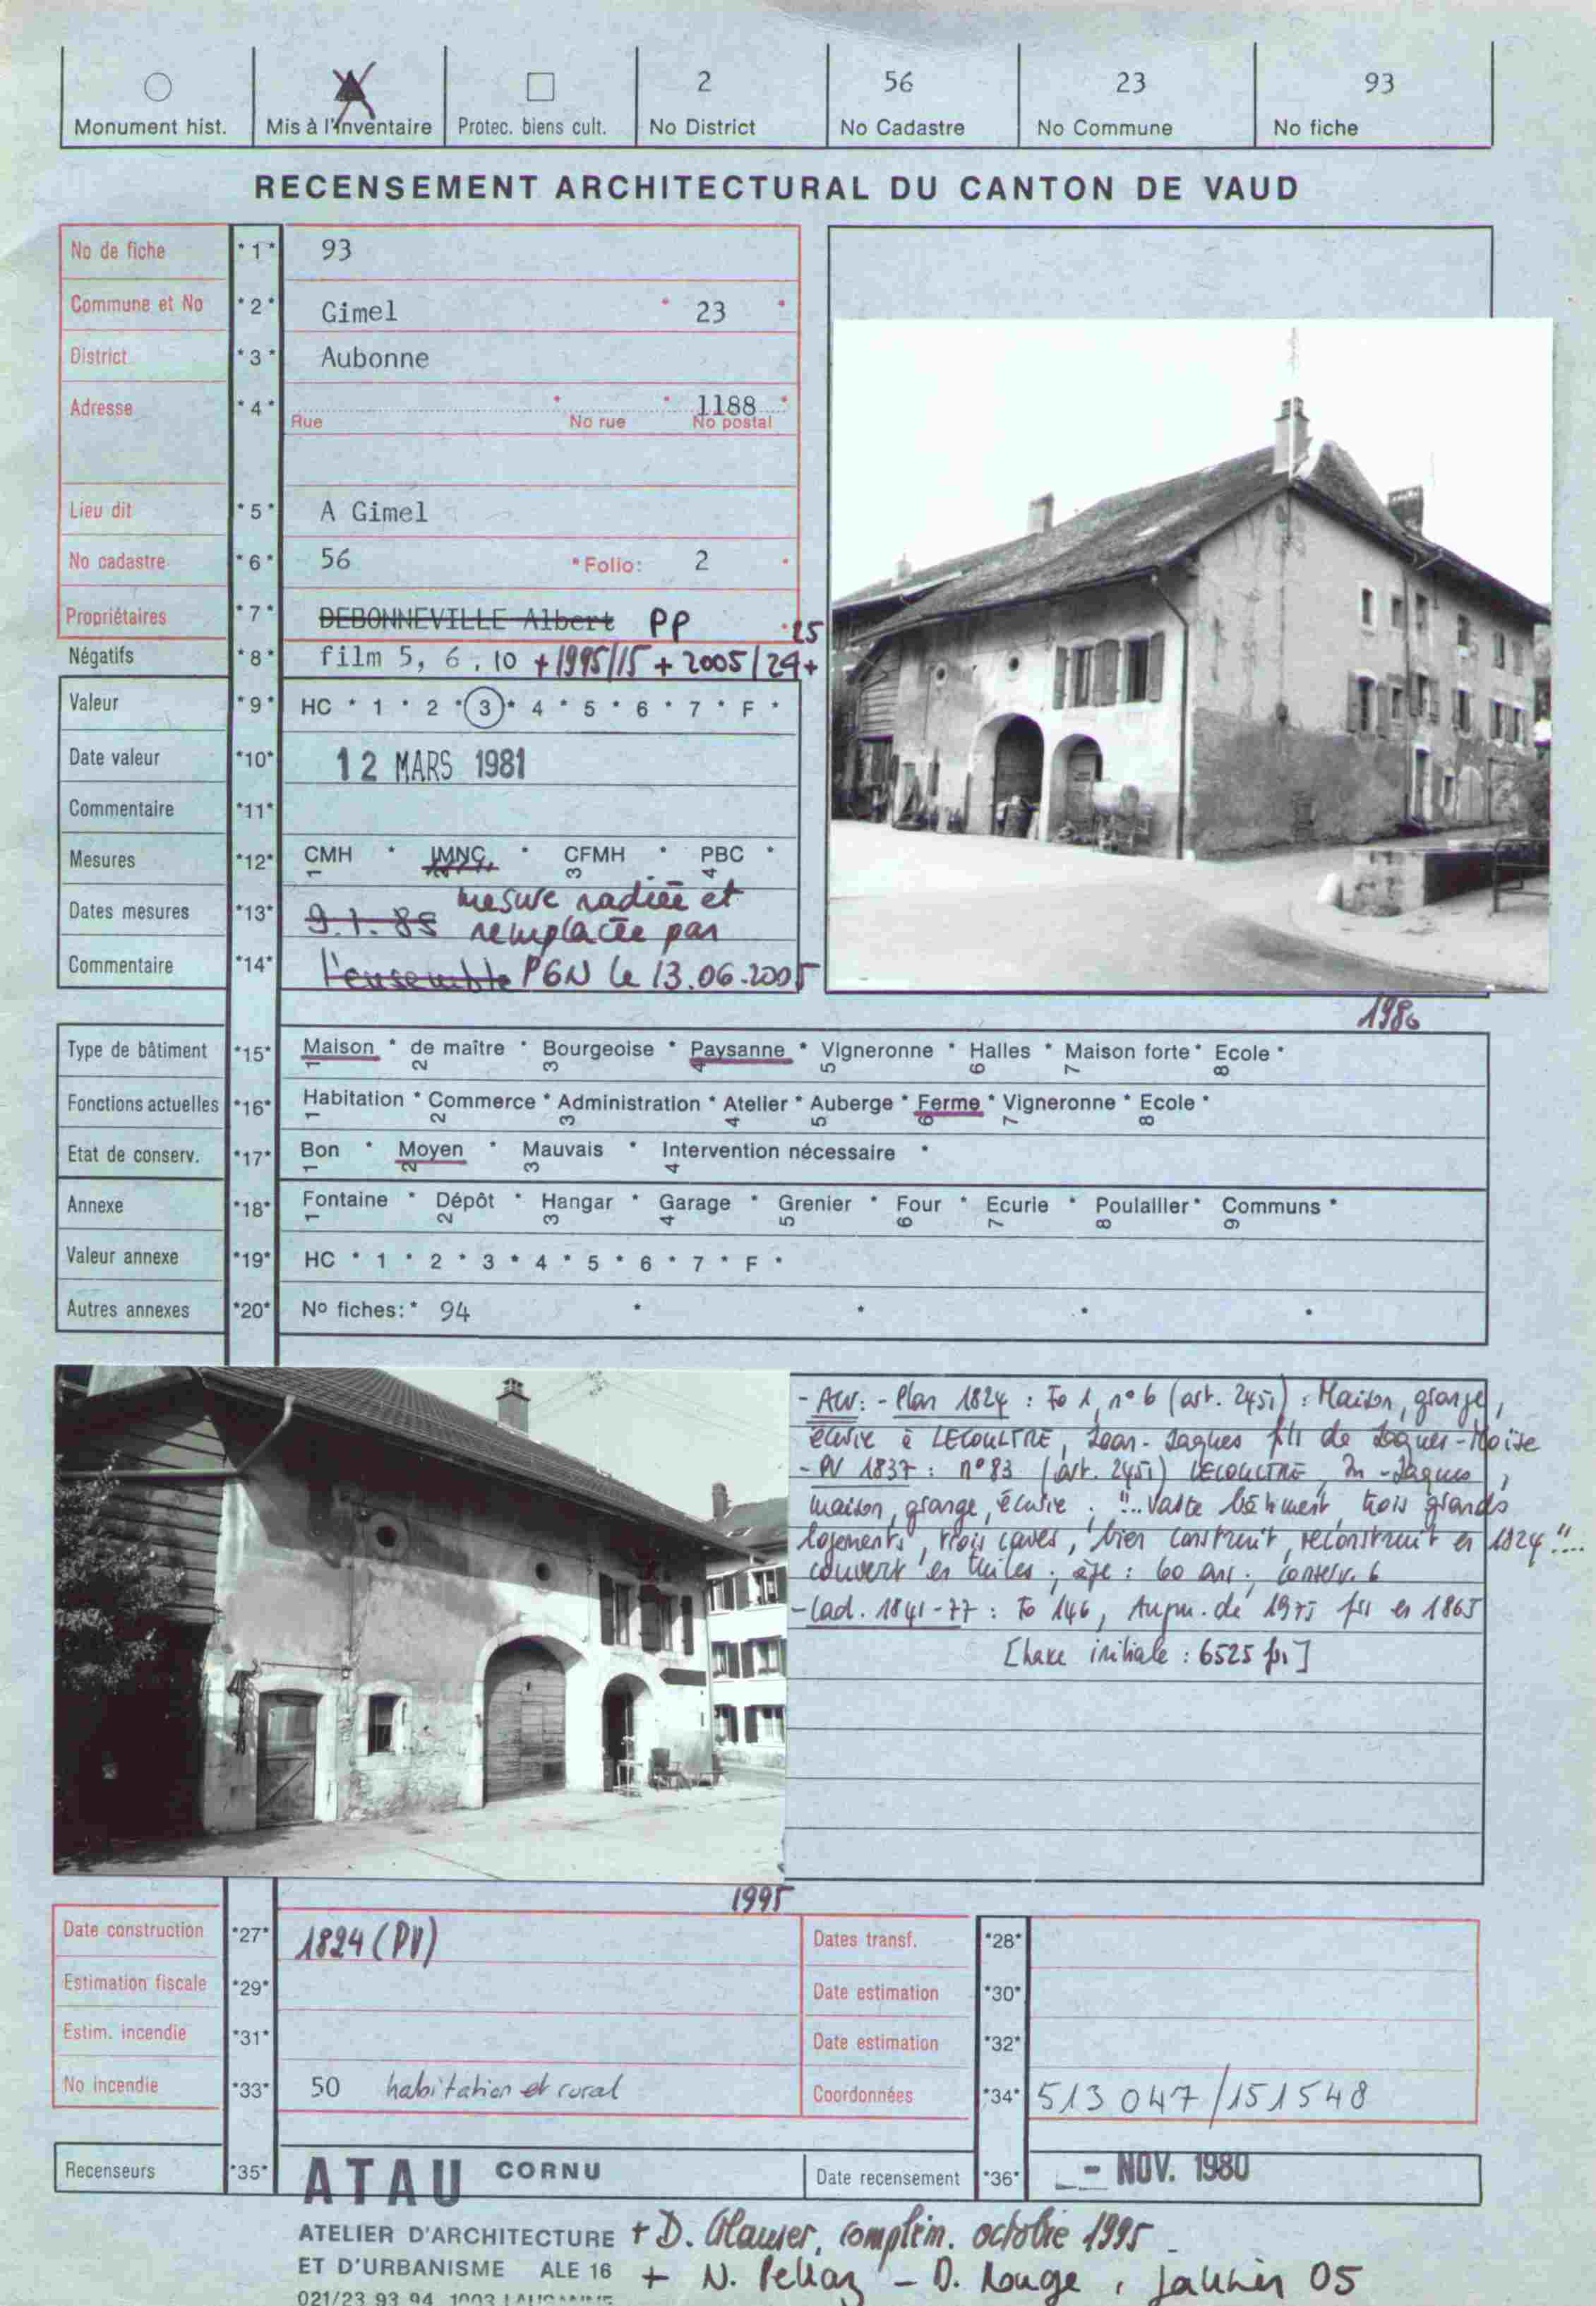 2 56 23 93
Monument hist. Mis à l'Inventaire Protec. biens cult. No District No Cadastre No Commune No fiche
RECENSEMENT ARCHITECTURAL DU CANTON DE VAUD
No de fiche *1* 93
Commune et No *2* Gimel * 23 *
District *3* Aubonne
Adresse *4* * * 1188 *
Rue No rue No postal
Lieu dit *5* A Gimel
No cadastre *6* 56 * Folio: 2 *
Propriétaires *7* DEBONNEVILLE Albert PP
Négatifs *8* film 5, 6, 10 + 1995/15 + 2005/24+25
Valeur *9* HC * 1 * 2 * 3 * 4 * 5 * 6 * 7 * F *
Date valeur *10* 12 MARS 1981
Commentaire *11*
Mesures *12* CMH * IMNC * CFMH * PBC *
1 3 4
Dates mesures *13* 9.1.85 mesure radiée et
remplacée par
Commentaire *14* l'ensemble PGN le 13.06.2005
1980
Type de bâtiment *15* Maison * de maître * Bourgeoise * Paysanne * Vigneronne * Halles * Maison forte * Ecole *
1 2 3 4 5 6 7 8
Fonctions actuelles *16* Habitation * Commerce * Administration * Atelier * Auberge * Ferme * Vigneronne * Ecole *
1 2 3 4 5 6 7 8
Etat de conserv. *17* Bon * Moyen * Mauvais * Intervention nécessaire *
1 2 3 4
Annexe *18* Fontaine * Dépôt * Hangar * Garage * Grenier * Four * Ecurie * Poulailler * Communs *
1 2 3 4 5 6 7 8 9
Valeur annexe *19* HC * 1 * 2 * 3 * 4 * 5 * 6 * 7 * F *
Autres annexes *20* No fiches: * 94 * * * *
- ACV: - Plan 1824 : Fo 1, n° 6 (art. 2451) : Maison, grange,
écurie à LECOULTRE, Jean-Jaques fils de Jaques-Moïse
- PV 1837 : n° 83 (art. 2451) LECOULTRE, Jn-Jaques,
maison, grange, écurie : "...Vaste bâtiment, trois grands
logements, trois caves, bien construit, reconstruit en 1824"...
couvert en tuiles ; âge : 60 ans ; conserv. 6
- Cad. 1841-77 : Fo 146, Augm. de 1975 frs en 1865
[taxe initiale : 6525 frs]
1995
Date construction *27* 1824 (PV) Dates transf. *28*
Estimation fiscale *29* Date estimation *30*
Estim. incendie *31* Date estimation *32*
No incendie *33* 50 habitation et rural Coordonnées *34* 513 047/151548
Recenseurs *35* ATAU CORNU Date recensement *36* - NOV. 1980
ATELIER D'ARCHITECTURE + D. Glauser, complém. octobre 1995
ET D'URBANISME ALE 16 + N. Pellaz - D. Rouge, janvier 05
021/23 93 94 1003 LAUSANNE